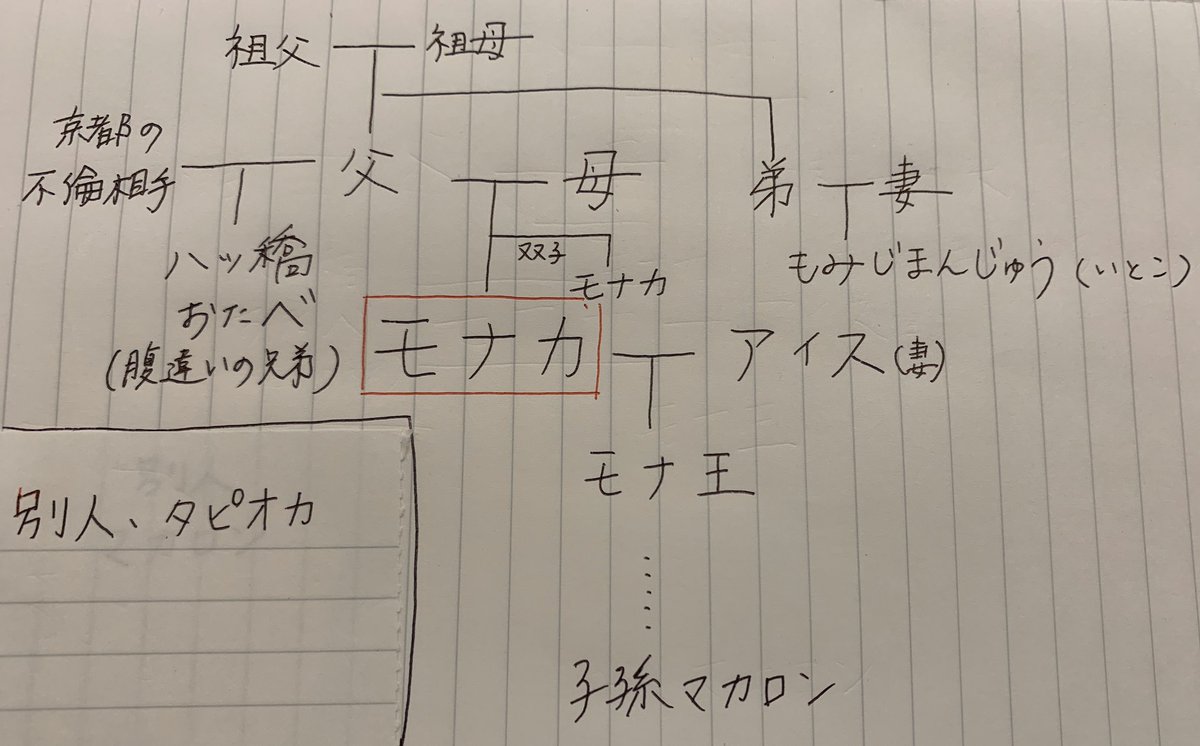 祖父 祖母
京都の
不倫相手 父 母 弟 妻
双子
八ッ橋 もみじまんじゅう(いとこ)
モナカ
おたべ
(腹違いの兄弟) モナカ アイス(妻)
モナ王
別人、タピオカ
子孫マカロン